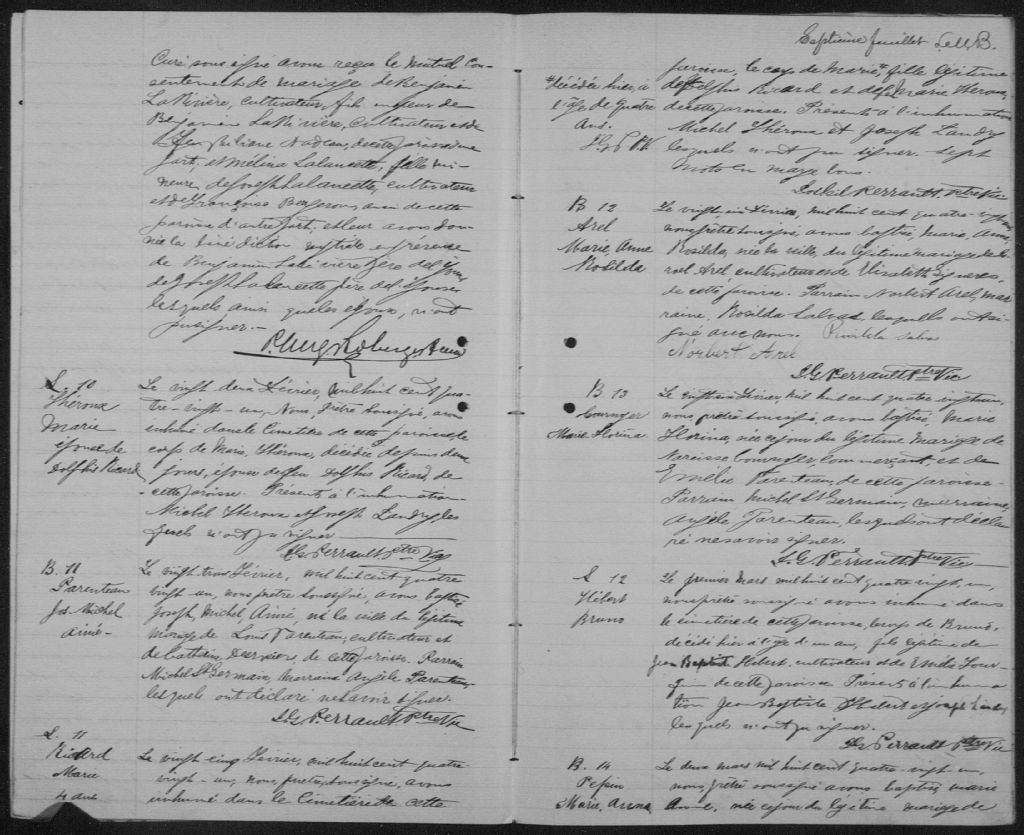 Curé sous signé avons reçu le mutuel con-
sentement de mariage de Benjamin
LaRivière, cultivateur, fils mineur de
Benjamin LaRivière, cultivateur et de
Nadeau, de cette paroisse d'une
part, et Mélina Lalancette, fille mi-
neure de Joseph Lalancette, cultivateur
et de Françoise Bergeron, aussi de cette
paroisse d'autre part, et leur avons don-
née la bénédiction nuptiale en présence
de Benjamin LaRivière père de l'époux
de Joseph Lalancette père de l'épouse
lesquels ainsi que les époux, n'ont
pu signer.-
S. 10
Théroux
Marie
épouse de
Dolphis Ricard
Le vingt deux Février, mil huit cent qua-
tre-vingt-un, Nous Prêtre soussigné, avons
inhumé dans le Cimetière de cette paroisse le
corps de Marie Théroux, décédée depuis deux
jours, épouse de feu Dolphis Ricard, de
cette paroisse. Présents à l'inhumation
Michel Théroux et Joseph Landry les
quels n'ont pu signer
J.G. Perrault Ptre Vic
B. 11
Parenteau
Jos. Michel
Aimé-
Le vingt trois Février, mil huit cent quatre
vingt-un, nous prêtre soussigné, avons baptisé
Joseph, Michel Aimé, né la veille du légitime
mariage de Louis Parenteau, cultivateur et
de de cette paroisse. Parrain
Michel St Germain, marraine Angèle Parenteau,
lesquels ont déclaré ne savoir signer.
J.G. Perrault Ptre Vic
S. 11
Ricard
Marie
4 ans
Le vingt cinq Février, mil huit cent quatre
vingt-un, nous prêtre soussigné, avons
inhumé dans le Cimetière de cette
Septième feuillet
paroisse, le corps de Marie,* fille légitime
de Dolphis Ricard et de Marie Théroux,
de cette paroisse. Présents à l'inhumation
Michel Théroux et Joseph Landry
lesquels n'ont pu signer. Sept
mots en marge bons.
*décédée hier, à
l'âge de quatre
Ans.
Perrault Ptre Vic
B 12
Arel
Marie, Anne
Rosilda
Le vingt-six Février, mil huit cent quatre-vingt-un,
nous prêtre soussigné, avons baptisé Marie, Anne,
Rosilda, née la veille, du légitime mariage de
Arel, cultivateur et de Elizabeth
de cette paroisse. Parrain Norbert Arel, mar
raine, Rosilda Salvas, lesquels ont si-
gné avec nous.
Norbert Arel
J.G. Perrault Ptre Vic
B. 13
Marie Florina
Le vingt six Février, mil huit cent quatre vingt un,
nous prêtre soussigné, avons baptisé, Marie
Florina, née ce jour du légitime mariage de
Narcisse commerçant, et de
Emélie Parenteau, de cette paroisse.
Parrain Michel St Germain, marraine,
Angèle Parenteau, lesquels ont décla
ré ne savoir signer.
J.G. Perrault Ptre Vic
S 12
Hébert
Bruno
Le premier mars mil huit cent quatre vingt un,
nous prêtre soussigné avons inhumé dans
le cimetière de cette paroisse, le corps de Bruno,
décédé hier à l'âge d'un an, fils légitime de
Jean Baptiste Hébert, cultivateur et de Emélie
de cette paroisse Présents à l'inhuma
tion Jean Baptiste Hébert et Joseph Landry
lesquels n'ont pu signer.
J.G. Perrault Ptre Vic
B. 14
Pepin
Marie, Anna
Le deux mars mil huit cent quatre-vingt un,
nous prêtre soussigné avons baptisé marie
née ce jour du légitime mariage de